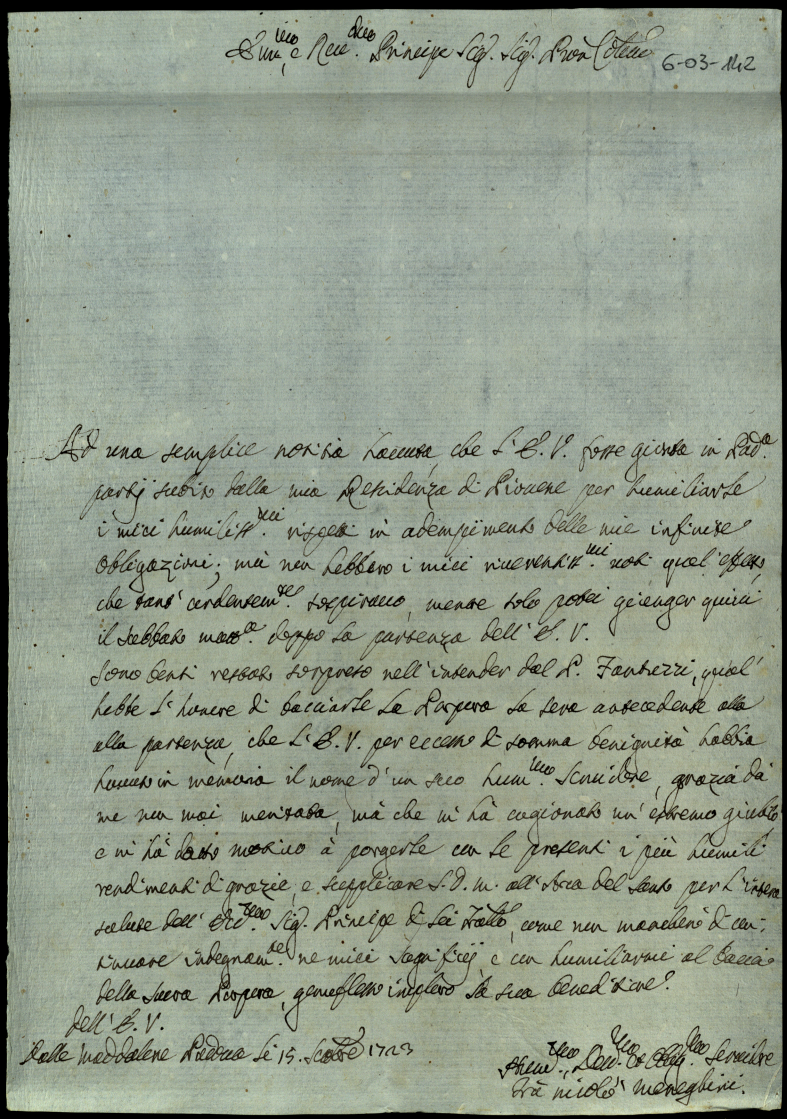 Emin.mo e Rev.mo Principe Sig. Sig. Pron Col.mo
6-03-142
Ad una semplice notitia havuta, che l'E. V. fosse giunta in Pad.a
partij subito dalla mia Residenza di Piovene per humiliarle
i miei humiliss.mi rispetti in adempimento delle mie infinite
obligazioni; mà non hebbero i miei riverentiss.mi voti quel'effetto,
che tant' ardentem.te sospiravo, mentre solo potei gionger quivi
il sabbato matt.a doppo la partenza dell'E. V.
Sono benti restato sorpreso nell'intender dal P. Fantuzzi, qual'
hebbe l'honore di bacciarle la Porpora la sera antecedente alla
alla partenza, che l'E. V. per eccesso di somma benignità habbia
havuto in memoria il nome d'un suo hum.mo Servidore, grazia da
me non mai meritata, mà che m'hà cagionato un'estremo giubilo
e m'hà dato motivo à porgerle con le presenti i più humili
rendimenti di grazie, e supplicare S. D. M. all'Arca del Santo per l'intera
salute dell' Ecc.mo Sig. Principe di Lei Frãtello, come non mancherò di con-
tinuare indegnam.te ne miei Sagrificij e con humiliarmi al baccio
della Sacra Porpora, genuflesso imploro la sua beneditione.
dell'E. V.
Dalle Maddalene Padova li 15. 1723
Hum.mo, Dev.mo et Obbl.mo Servidore
Frà Nicolò Meneghini.